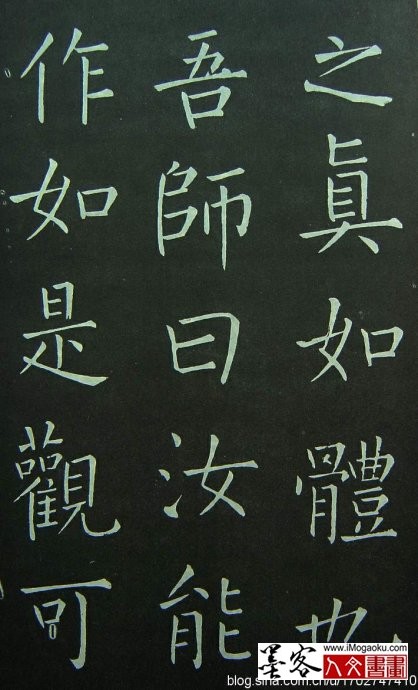 之眞如體也
吾師曰汝能
作如是觀可
墨客
www.iMogaoku.com
人文書畫
blog.sina.com.cn/u/1702747410